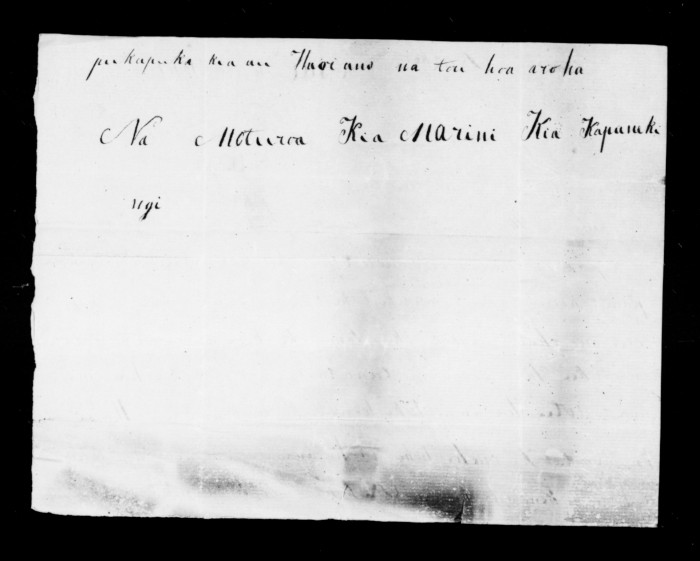 pukapuka kia au Hari ano na tou hoa aroha
Na Moturoa Kia Marini Kia Kapunuki
ngi